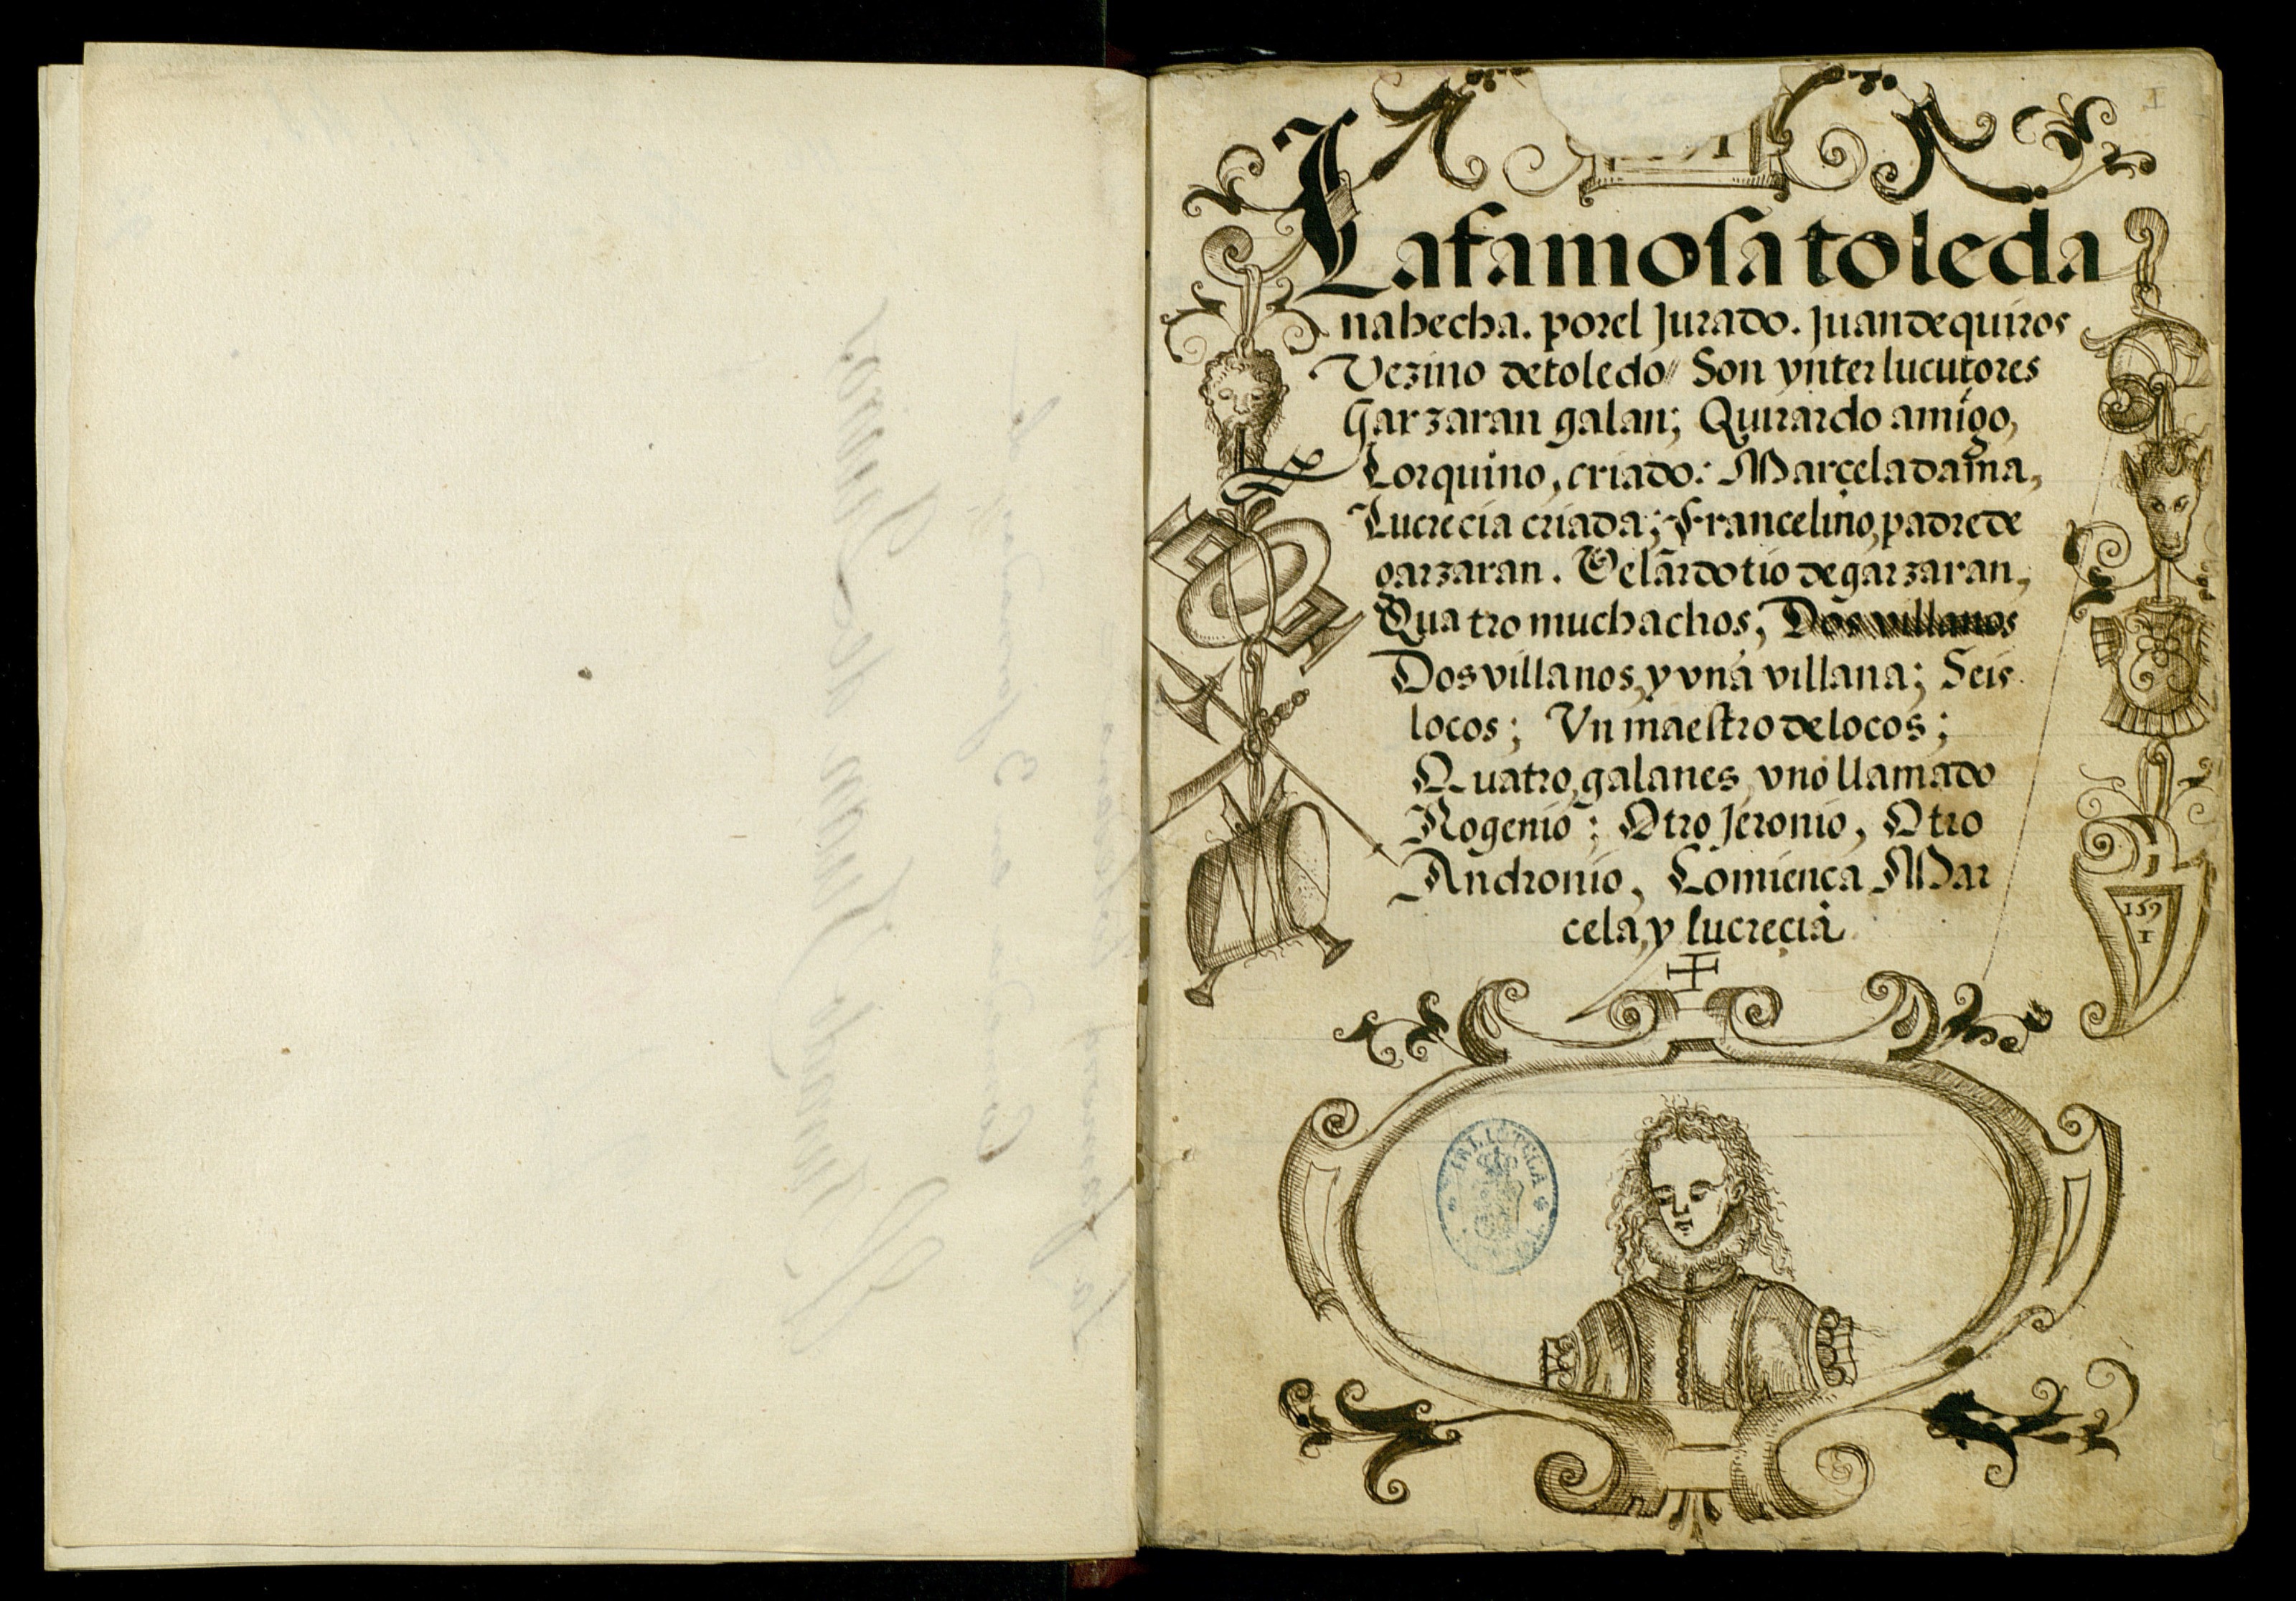 I
La famosa toleda
na hecha. por el Jurado. Juan de quiros
Vezino de toledo// Son ynterlucutores
Garzaran galan; Quirardo amigo,
Lorquino, criado: Marçela dama,
Lucrecia criada; Francelino, padre de
garzaran. Velardo tio de garzaran,
Quatro muchachos, Dos villanos
Dos villanos, y vna villana; Seis
locos; Vn maestro de locos;
Quatro, galanes, vno llamado
Rogenio; Otro Jeronio, Otro
Andronio, Comiença Mar
cela, y lucrecia
159
1
BIBLIOTECA